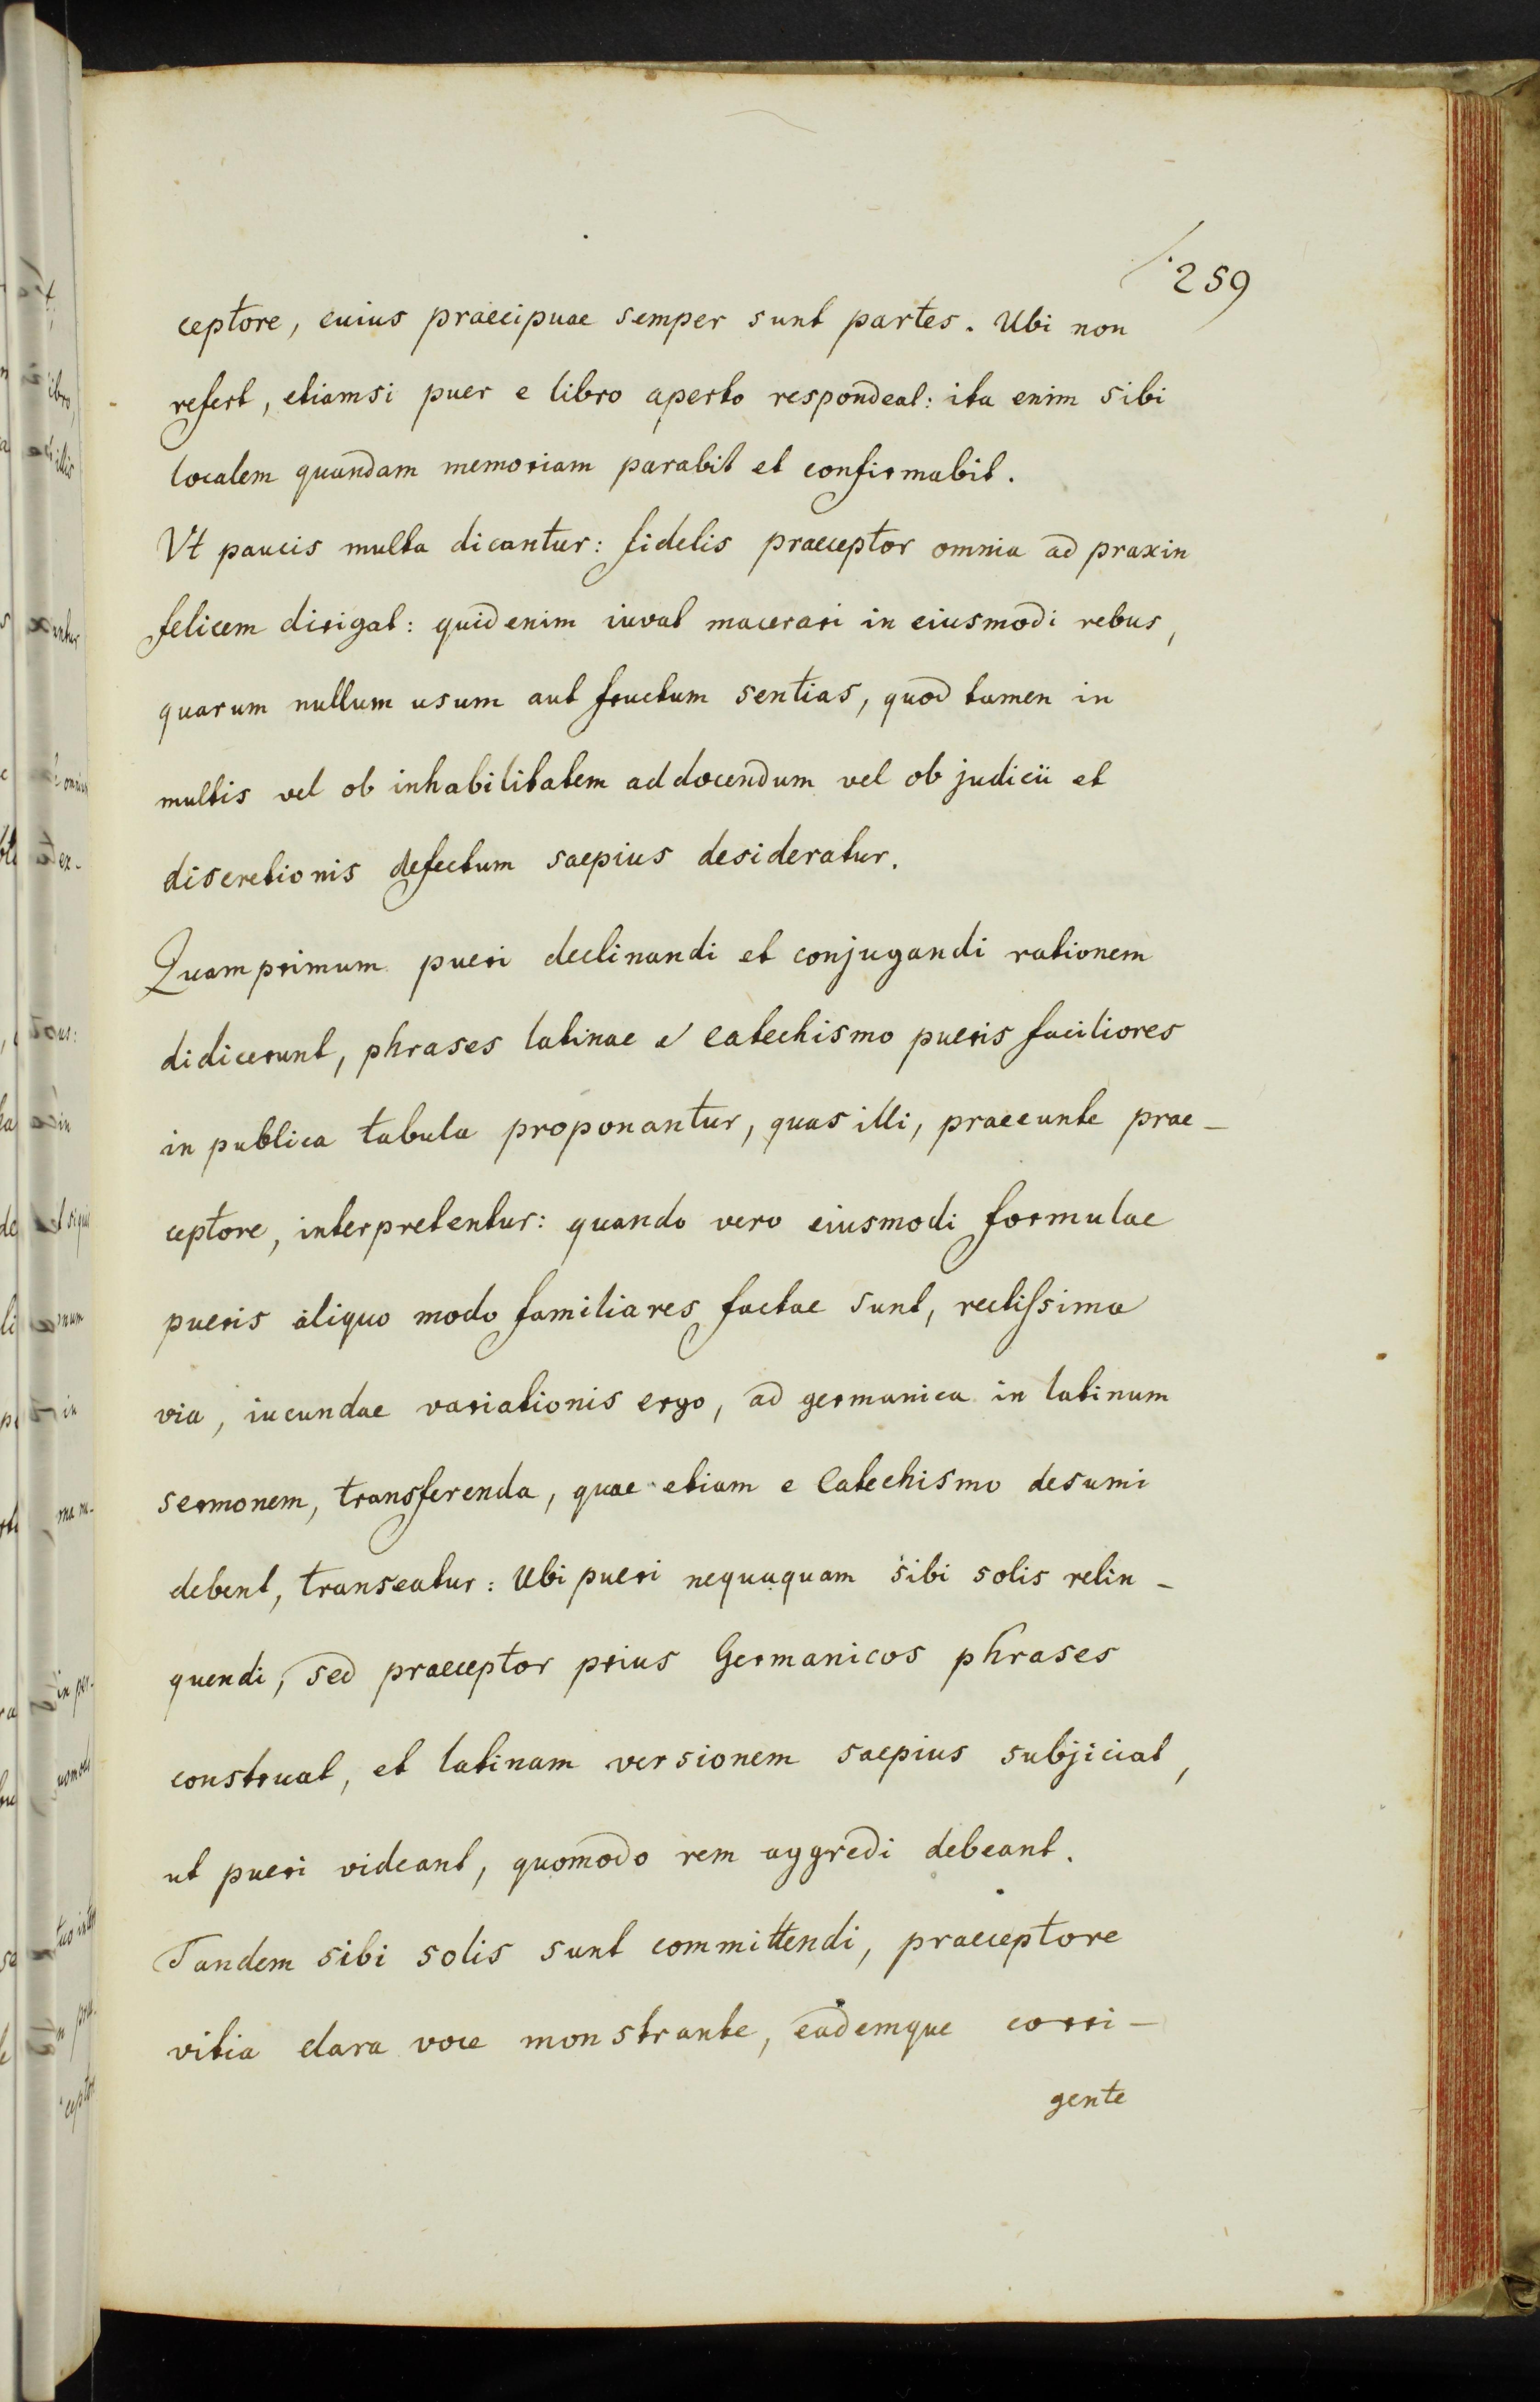 259
ceptore, cuius praecipuae semper sunt partes. Ubi non
refert, etiamsi puer e libro aperto respondeat: ita enim sibi
localem quandam memoriam parabit et confirmabit.
Vt paucis multa dicantur: fidelis praeceptor omnia ad praxin
felicem dirigat: quid enim iuvat macerari in eiusmodi rebus,
quarum nullum usum aut fructum sentias, quod tamen in
multis vel ob inhabilitatem ad docendum vel ob judicii et
discretionis defectum saepius desideratur.
Quamprimum pueri declinandi et conjugandi rationem
didicerunt, phrases latinae e catechismo pueris faciliores
in publica tabula proponantur, quas illi, praeeunte prae-
ceptore, interpretentur: quando vero eiusmodi formulae
pueris aliquo modo familiares factae sunt, rectissima
via, iucundae variationis ergo, ad germanica in latinum
sermonem, transferenda, quae etiam e Catechismo desumi
debent, transeatur: Ubi pueri nequaquam sibi solis relin-
quendi, sed praeceptor prius Germanicos phrases
construat, et latinam versionem saepius subjiciat,
ut pueri videant, quomodo rem aggredi debeant.
Tandem sibi solis sunt committendi, praeceptore
vitia clara voce monstrante, eademque corri-
gente